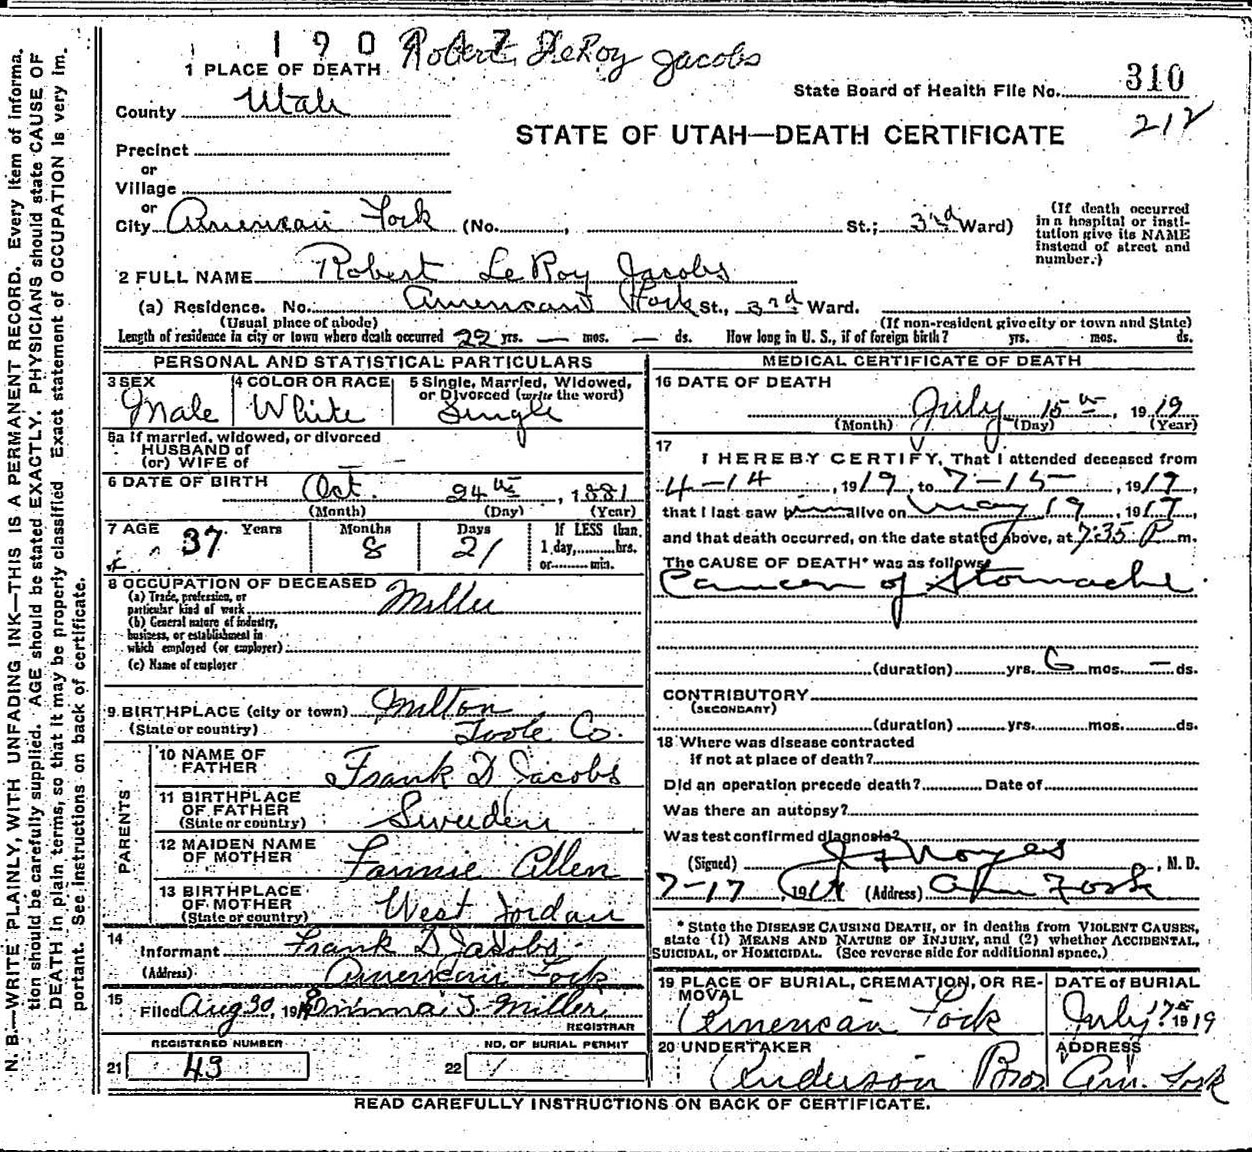 1 9 0 4 7
Robert LeRoy Jacobs
1 PLACE OF DEATH
State Board of Health File No. 310
County Utah
212
STATE OF UTAH—DEATH CERTIFICATE
Precinct
or
Village
or
City American Fork (No. , St.; 3rd Ward)
(If death occurred in a hospital or institution give its NAME instead of street and number.)
2 FULL NAME Robert LeRoy Jacobs
(a) Residence. No. American Fork St., 3rd Ward.
(Usual place of abode) (If non-resident give city or town and State)
Length of residence in city or town where death occurred 22 yrs. — mos. — ds. How long in U. S., if of foreign birth? yrs. mos. ds.
PERSONAL AND STATISTICAL PARTICULARS
3 SEX Male
4 COLOR OR RACE White
5 Single, Married, Widowed, or Divorced (write the word) Single
5a If married, widowed, or divorced
HUSBAND of
(or) WIFE of — —
6 DATE OF BIRTH Oct. 24th, 1881
(Month) (Day) (Year)
7 AGE 37 Years 8 Months 21 Days
If LESS than
1 day, hrs.
or min.
8 OCCUPATION OF DECEASED
(a) Trade, profession, or
particular kind of work Miller
(b) General nature of industry,
business, or establishment in
which employed (or employer)
(c) Name of employer
9 BIRTHPLACE (city or town) Milton
(State or country) Toole Co.
PARENTS
10 NAME OF FATHER Frank D Jacobs
11 BIRTHPLACE OF FATHER
(State or country) Sweden
12 MAIDEN NAME OF MOTHER Fannie Allen
13 BIRTHPLACE OF MOTHER
(State or country) West Jordan
14
Informant Frank D Jacobs
(Address) American Fork
15
Filed Aug 30, 1919 Emma J. Miller
REGISTRAR
REGISTERED NUMBER
21 43
NO. OF BURIAL PERMIT
22 /
MEDICAL CERTIFICATE OF DEATH
16 DATE OF DEATH
July 15th, 1919
(Month) (Day) (Year)
17
I HEREBY CERTIFY, That I attended deceased from
4-14, 1919, to 7-15-, 1919,
that I last saw him alive on May 19, 1919,
and that death occurred, on the date stated above, at 7:35 P m.
The CAUSE OF DEATH* was as follows:
Cancer of Stomache
(duration) yrs. 6 mos. — ds.
CONTRIBUTORY
(SECONDARY)
(duration) yrs. mos. ds.
18 Where was disease contracted
if not at place of death?
Did an operation precede death? Date of
Was there an autopsy?
Was test confirmed diagnosis?
(Signed) Noyes, M. D.
7-17, 1919 (Address) Am Fork
* State the DISEASE CAUSING DEATH, or in deaths from VIOLENT CAUSES,
state (1) MEANS AND NATURE OF INJURY, and (2) whether ACCIDENTAL,
SUICIDAL, or HOMICIDAL. (See reverse side for additional space.)
19 PLACE OF BURIAL, CREMATION, OR REMOVAL
American Fork
DATE of BURIAL
July 17th 1919
20 UNDERTAKER
Anderson Bros
ADDRESS
Am. Fork
READ CAREFULLY INSTRUCTIONS ON BACK OF CERTIFICATE.
N. B.—WRITE PLAINLY, WITH UNFADING INK—THIS IS A PERMANENT RECORD. Every item of informa-
tion should be carefully supplied. AGE should be stated EXACTLY. PHYSICIANS should state CAUSE OF
DEATH in plain terms, so that it may be properly classified. Exact statement of OCCUPATION is very im-
portant. See instructions on back of certificate.